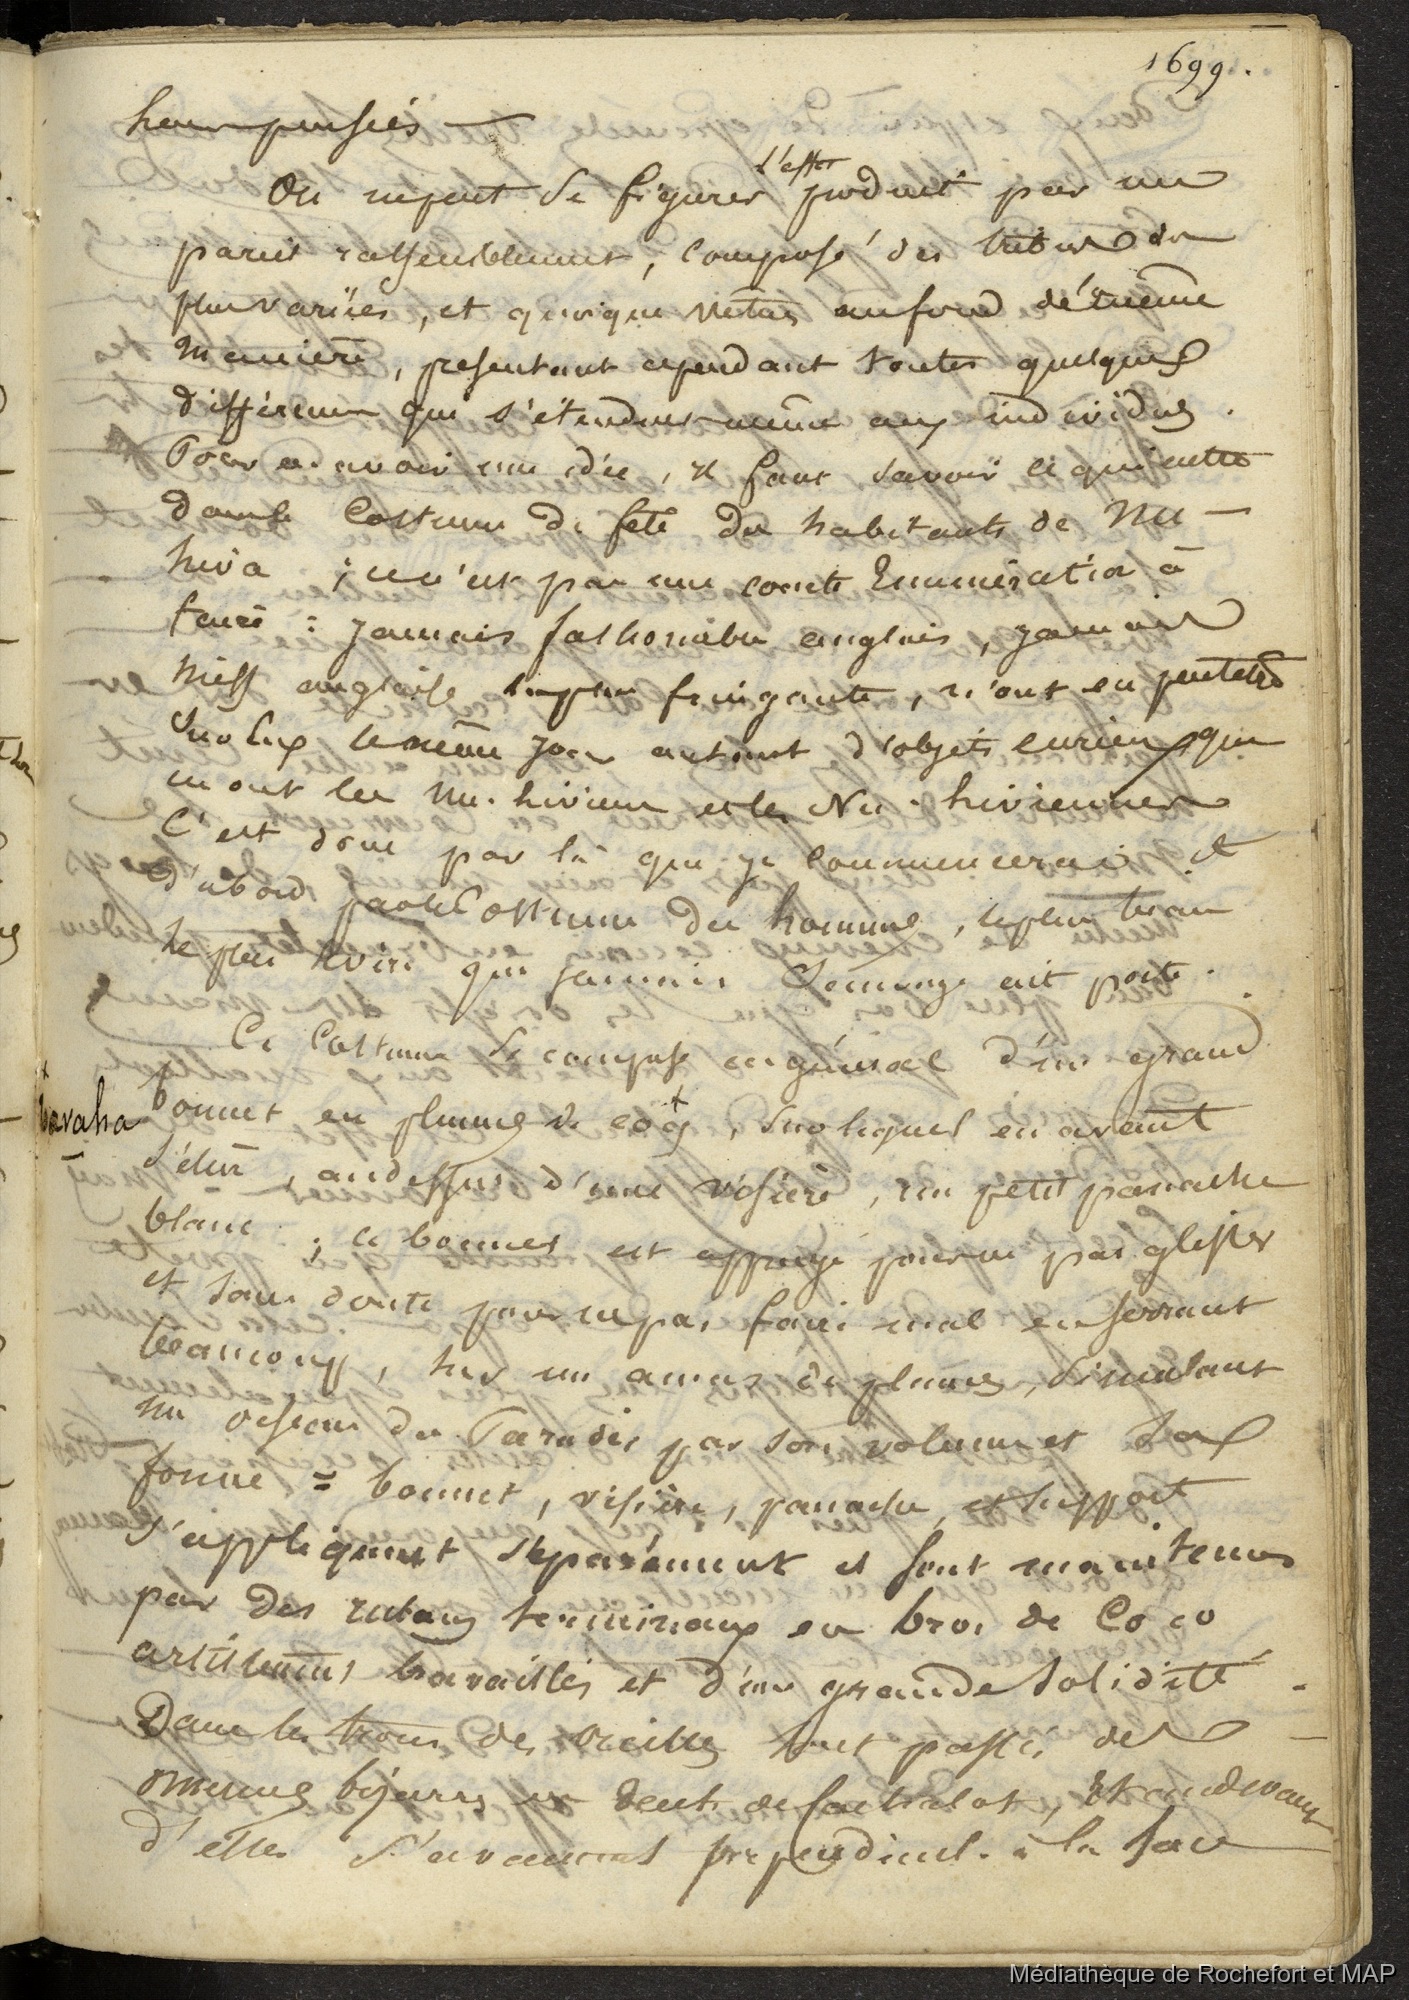 1699.
leurs pensées —
On ne peut se figurer l'effet produit par un
pareil rassemblement, composé des tribus les
plus variées, et quoique vêtues au fond de même
manière, présentant cependant toutes quelques
différences qui s'étendent même aux individus.
Pour en avoir une idée, il faut savoir ce qui entre
dans le costume de fête des habitants de Nu-
hiva ; ce n'est pas une courte énumération à
faire : jamais fashionable anglais, jamais
miss anglaise la plus fringante, n'ont eu peutetre
sur eux le même jour autant d'objets curieux que
en ont les Nu-hiviens et les Nu-hiviennes
C'est donc par là que je commencerai et
d'abord par le costume des hommes, le plus beau
le plus que jamais sauvage ait porté.
Ce costume se compose en général d'un grand
bonnet en plumes de coq +, sur lequel en avant
+ tavaha
s'élève, au dessus d'une visière, un petit panache
blanc ; ce bonnet est appuyé pour ne pas glisser
et sans doute pour ne pas faire mal en serrant
beaucoup, sur un amas de plumes, simulant
un oiseau du Paradis par son volume et sa
forme = bonnet, visière, panache, et support
s'appliquent séparément et sont maintenus
par des rubans terminaux en brou de Coco
artistement travaillés et d'une grande solidité.
Dans les trous des oreilles sont passés des
bijarres en dents de cachalot, et au devant
d'elles s'avancent perpendicul. à la face